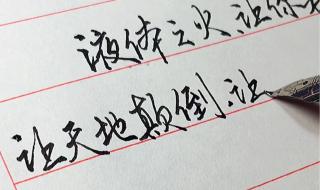 液体之火,让你
让天地颠倒,让